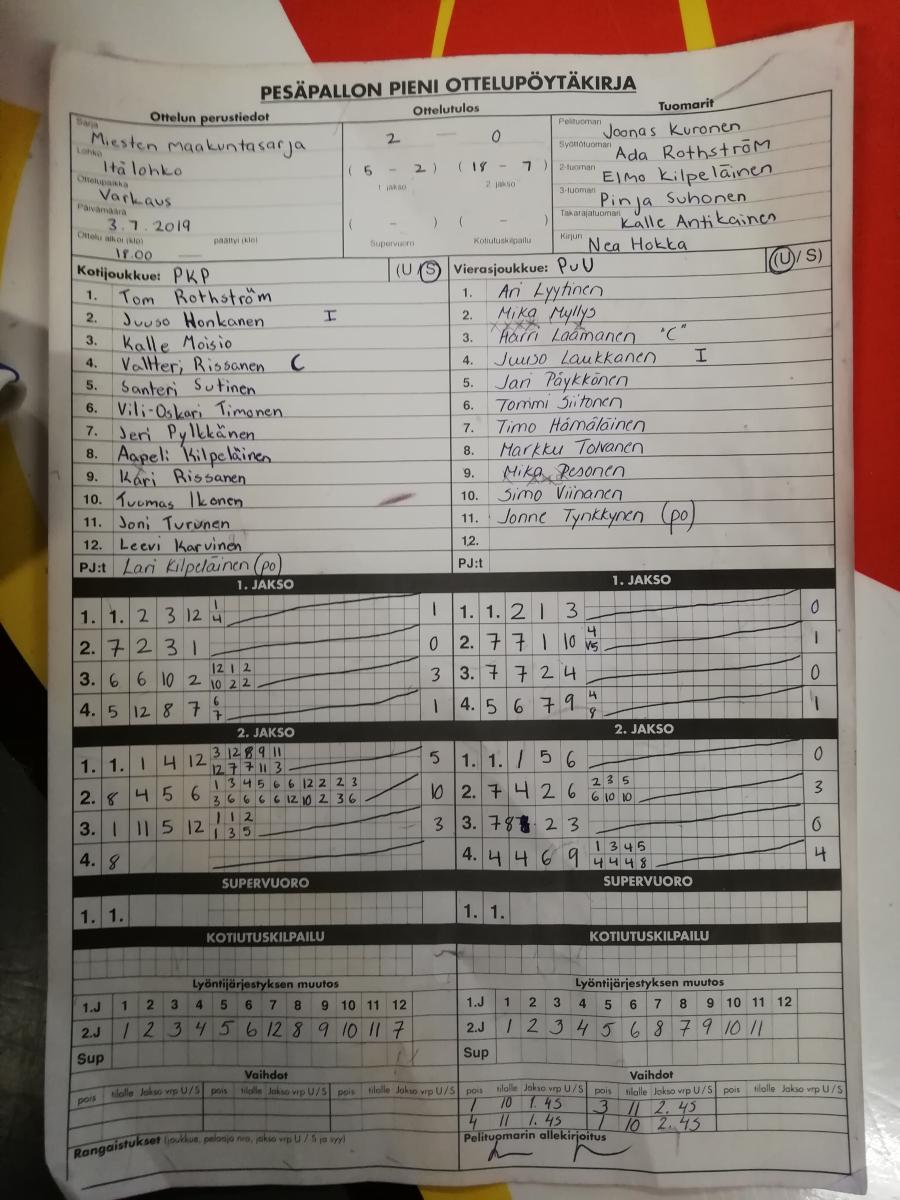 PESÄPALLON PIENI OTTELUPÖYTÄKIRJA
Ottelun perustiedot
Ottelutulos
Tuomarit
Sarja
Miesten maakuntasarja
Lohko
Itälohko
Ottelupaikka
Varkaus
Päivämäärä
3.7.2019
Ottelu alkoi (klo) päättyi (klo)
18.00
2 — 0
( 5 - 2 ) ( 18 - 7 )
1 jakso 2 jakso
( - ) ( - )
Supervuoro Kotiutuskilpailu
Pelituomari Joonas Kuronen
Syöttötuomari Ada Rothström
2-tuomari Elmo Kilpeläinen
3-tuomari Pinja Suhonen
Takarajatuomari Kalle Antikainen
Kirjuri Nea Hokka
Kotijoukkue: PKP (U/S)
1. Tom Rothström
2. Juuso Honkanen I
3. Kalle Moisio
4. Valtteri Rissanen C
5. Santeri Sutinen
6. Vili-Oskari Timonen
7. Jeri Pylkkänen
8. Aapeli Kilpeläinen
9. Kari Rissanen
10. Tuomas Ikonen
11. Joni Turunen
12. Leevi Karvinen
PJ:t Lari Kilpeläinen (po)
Vierasjoukkue: PuU (U/S)
1. Ari Lyytinen
2. Mika Myllys
3. Harri Laamanen "C"
4. Juuso Laukkanen I
5. Jari Päykkönen
6. Tommi Siitonen
7. Timo Hämäläinen
8. Markku Toivanen
9. Mika Pesonen
10. Simo Viinanen
11. Jonne Tynkkynen (po)
12.
PJ:t
1. JAKSO
1. 1. 2 3 12 1 1
4
2. 7 2 3 1 0
3. 6 6 10 2 12 1 2 3
10 2 2
4. 5 12 8 7 6 1
7
2. JAKSO
1. 1. 1 4 12 3 12 8 9 11 5
12 7 7 11 3
2. 8 4 5 6 1 3 4 5 6 6 12 2 2 3 10
3 6 6 6 6 12 10 2 3 6
3. 1 11 5 12 1 1 2 3
1 3 5
4. 8
SUPERVUORO
1. 1.
KOTIUTUSKILPAILU
Lyöntijärjestyksen muutos
1.J 1 2 3 4 5 6 7 8 9 10 11 12
2.J 1 2 3 4 5 6 12 8 9 10 11 7
Sup
Vaihdot
pois tilalle Jakso vrp U/S pois tilalle Jakso vrp U/S pois tilalle Jakso vrp U/S
Rangaistukset (joukkue, pelaaja nro, jakso vrp U / S ja syy)
1. JAKSO
1. 1. 2 1 3 0
2. 7 7 1 10 4 1
V5
3. 7 7 2 4 0
4. 5 6 7 9 4 1
8
2. JAKSO
1. 1. 1 5 6 0
2. 7 4 2 6 2 3 5 3
6 10 10
3. 7 8 2 3 0
4. 4 4 6 9 1 3 4 5 4
4 4 4 8
SUPERVUORO
1. 1.
KOTIUTUSKILPAILU
Lyöntijärjestyksen muutos
1.J 1 2 3 4 5 6 7 8 9 10 11 12
2.J 1 2 3 4 5 6 8 7 9 10 11
Sup
Vaihdot
pois tilalle Jakso vrp U/S pois tilalle Jakso vrp U/S pois tilalle Jakso vrp U/S
1 10 1. 4S 3 11 2. 4S
4 11 1. 4S 1 10 2. 4S
Pelituomarin allekirjoitus